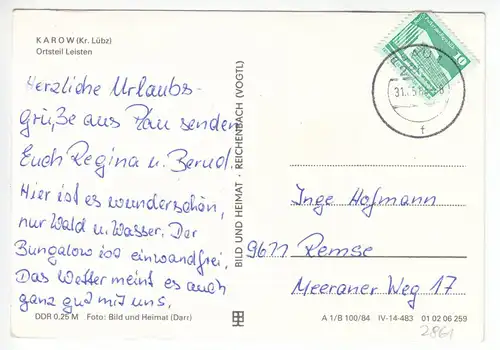 KAROW (Kr. Lübz)
Ortsteil Leisten
Herzliche Urlaubs-
grüße aus Plau senden
Euch Regina u. Bernd.
Hier ist es wunderschön,
nur Wald u. Wasser. Der
Bungalow ist einwandfrei.
Das Wetter meint es auch
ganz gut mit uns.
DDR 0.25 M Foto: Bild und Heimat (Darr)
BILD UND HEIMAT · REICHENBACH (VOGTL)
10
f
Inge Hofmann
9611 Remse
Meeraner Weg 17
A 1/B 100/84 IV-14-483 01 02 06 259
2861